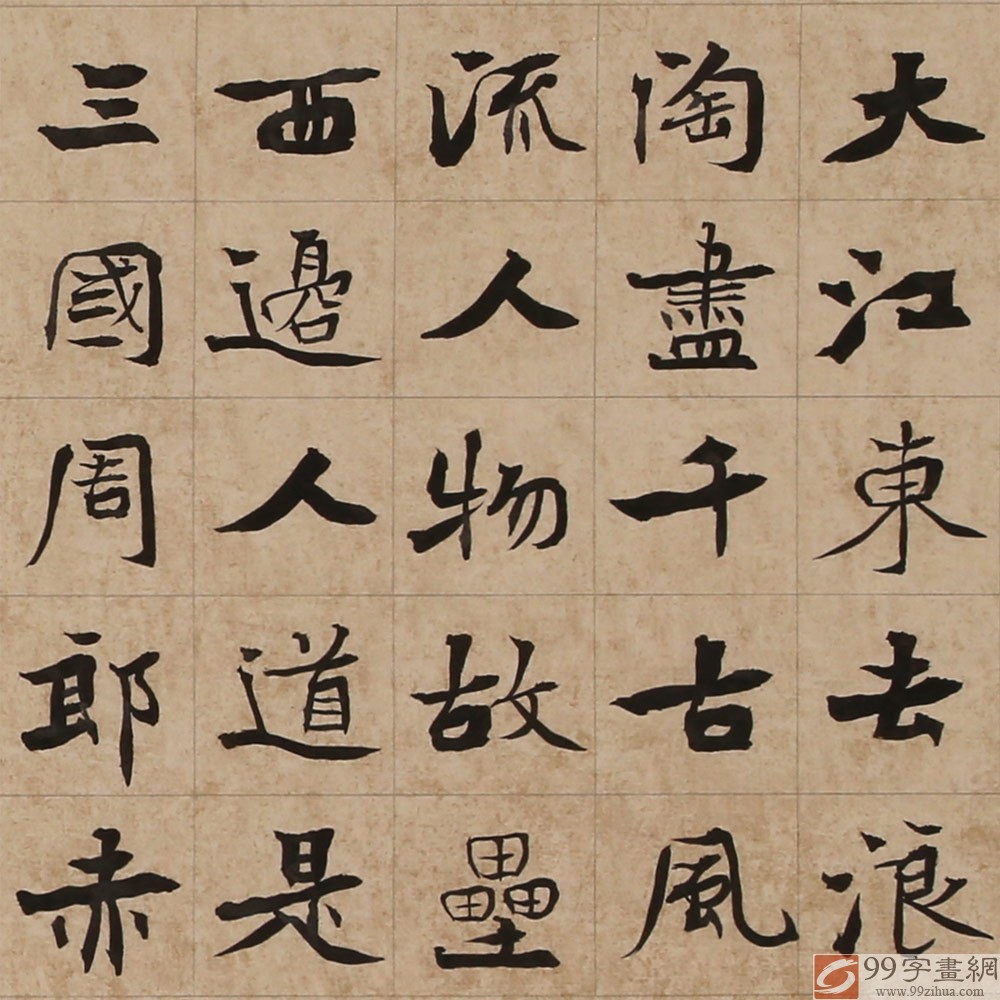 大江東去浪
淘盡千古風
流人物故壘
西邊人道是
三國周郎赤
99字畫網
www.99zihua.com